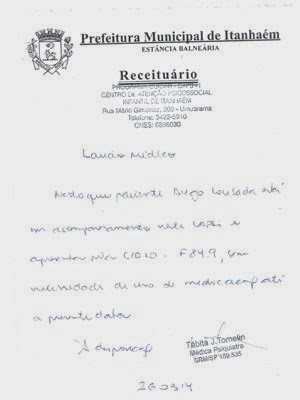 Prefeitura Municipal de Itanhaém
ESTÂNCIA BALNEÁRIA
Receituário
CENTRO DE ATENÇÃO PSICOSSOCIAL
INFANTIL DE ITANHAÉM
Rua Mário Gimenez, 300 - Umuarama
Telefone: 3422-5910
CNES: 6896030
Laudo Médico
Atesto que paciente Diego Lousada está
em acompanhamento neste CAPSi e
apresenta pelo CID10 - F84.9, sem
necessidade de uso de medicação até
a presente data
À disposição
Tábita J. Tomelin
Médica Psiquiatra
CRM/SP 159.535
26.03.14